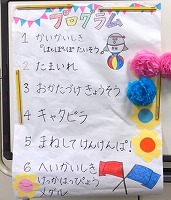 プログラム
1 かいかいしき
"ぱんぱぱぱんたいそう"
2 たまいれ
3 おかたづけきょうそう
4 キャタピラ
5 まねしてけんけんぱ!
6 へいかいしき
けっかはっぴょう
メダル